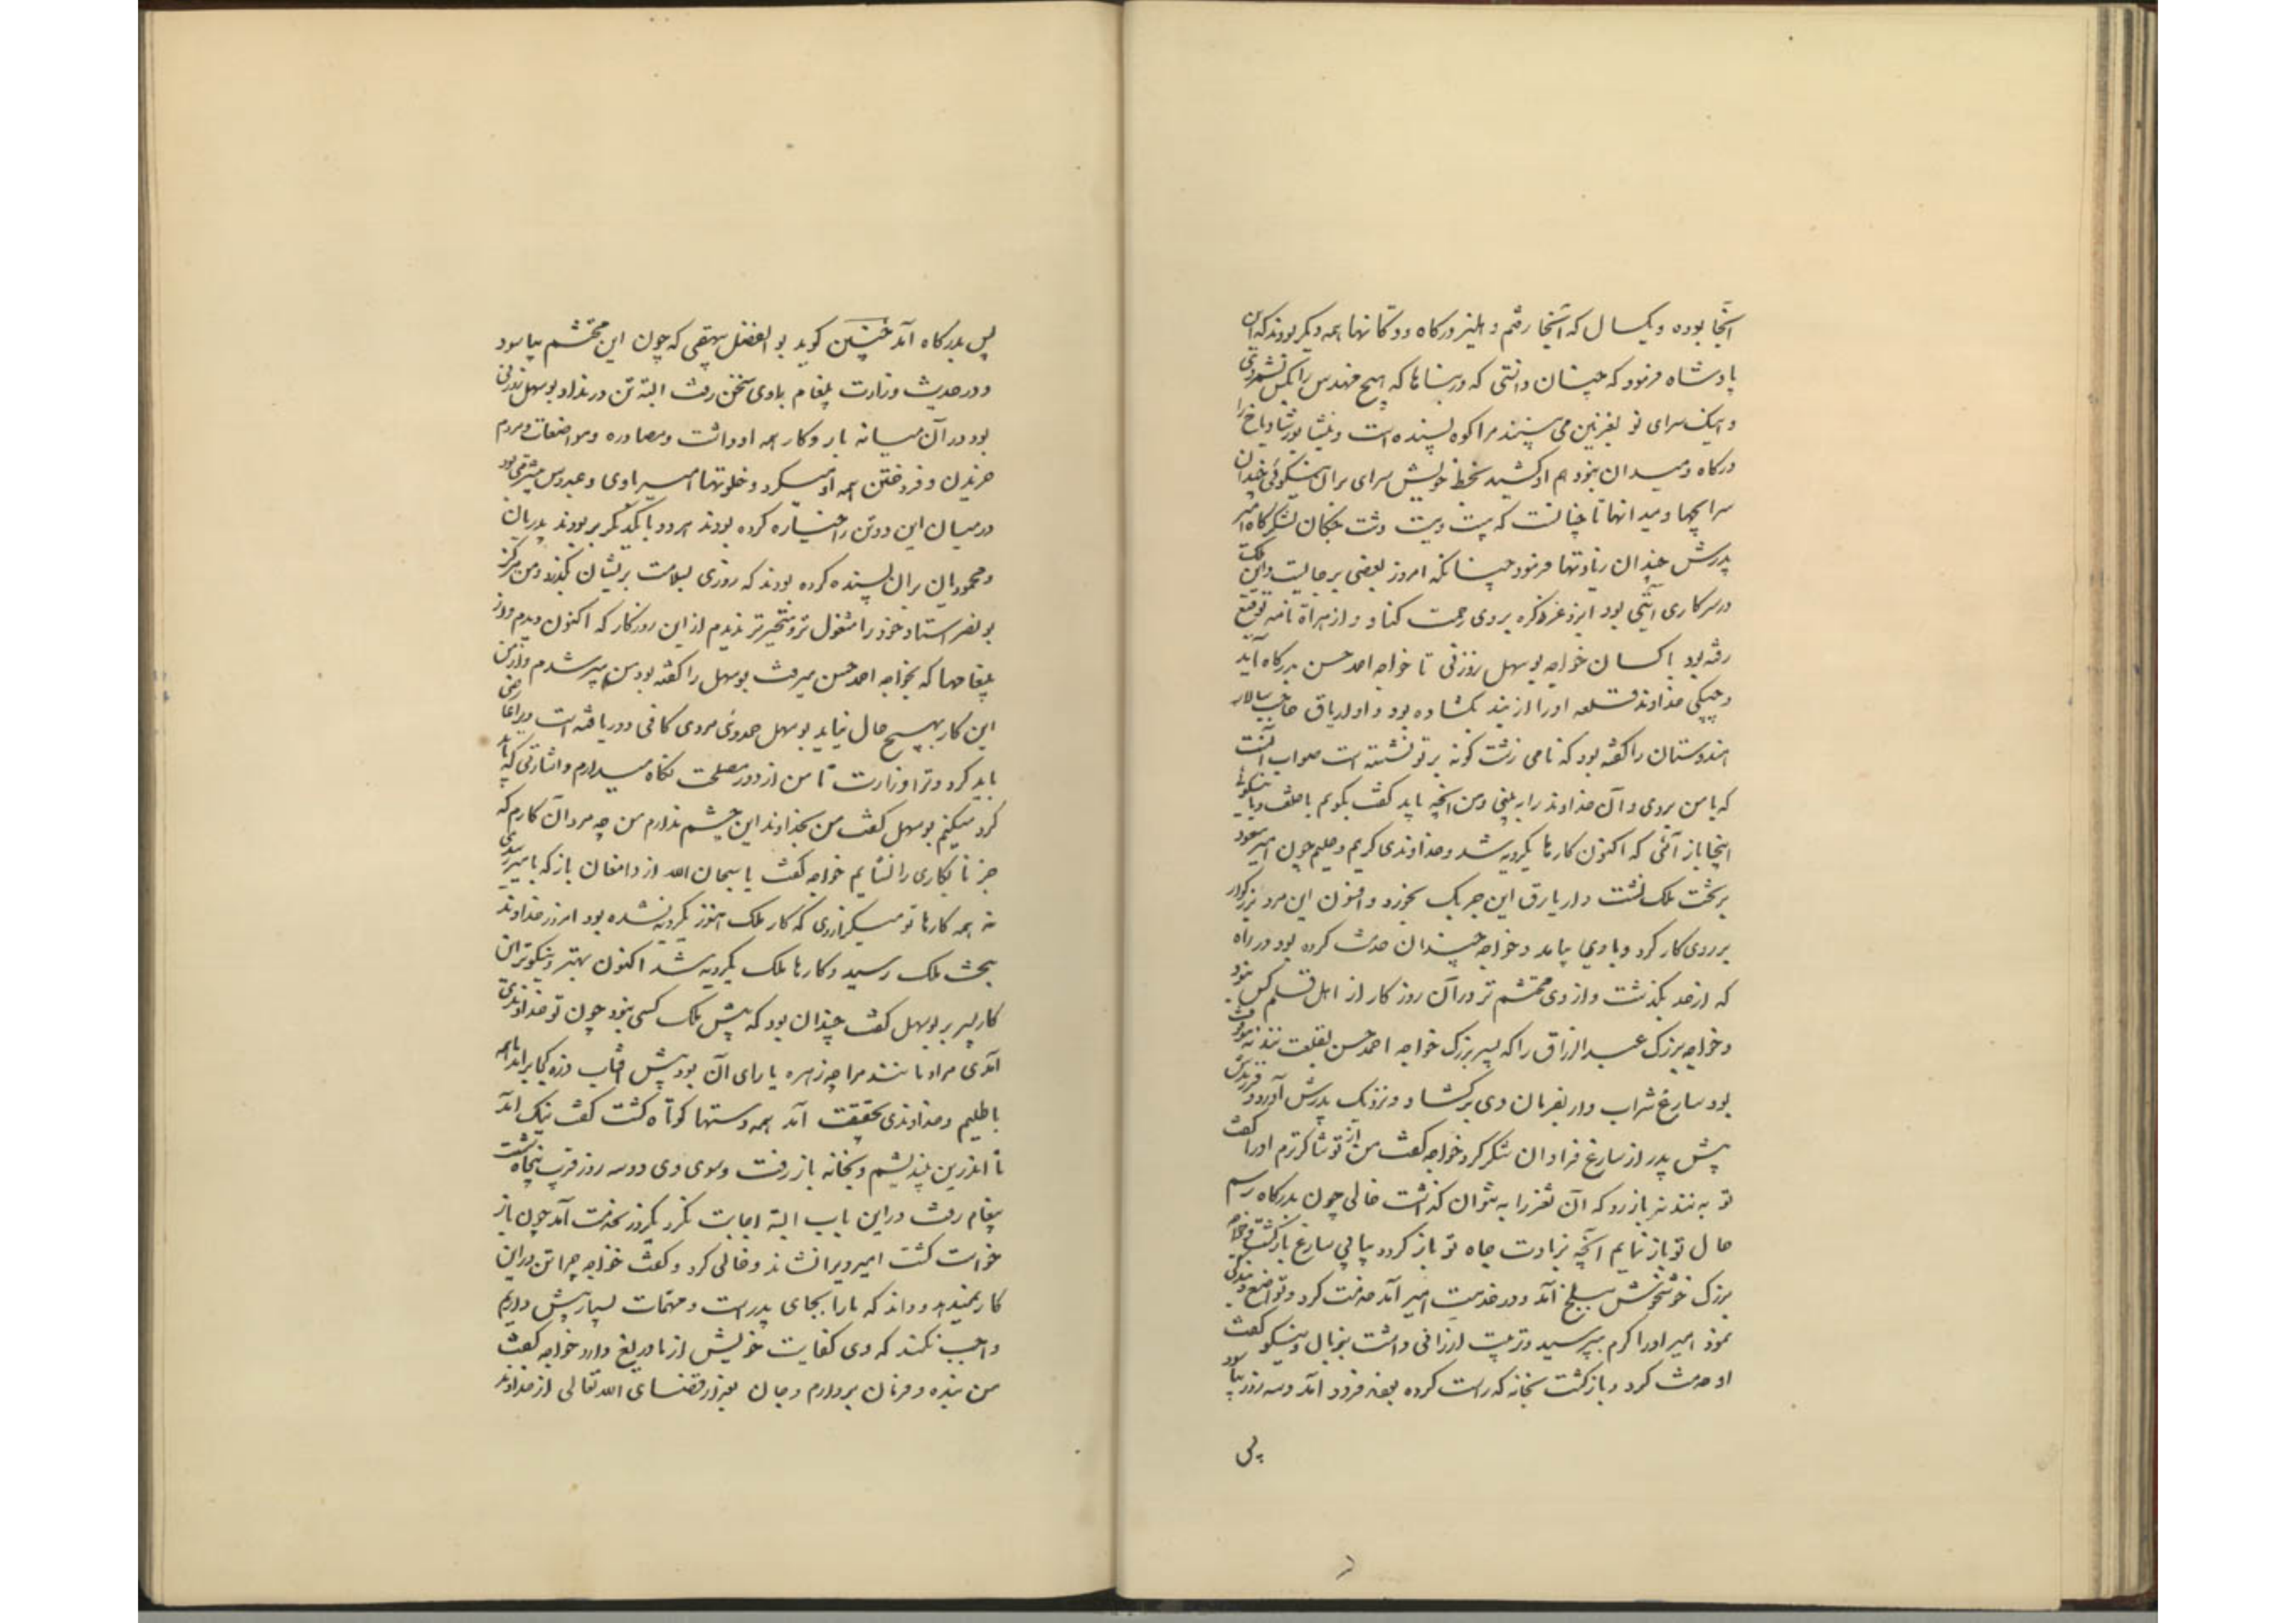 آنجا بوده و یکسال که آنجا رفتم دهلیز درکاه و دوکانها همه دیکر بودند که این
پادشاه فرمود که چنان دانستی که در بناها که هیچ مهندس را بکس نشمردی
و اینک سرای نو بغزنین می بینند مرا کوه بسنده است و بنشابور شادیاخ را
درکاه و میدان نبود هم او کشید بخط خویش سرای بران نیکوئی چندان
سراچها و میدانها تا چنانست که هست و ببست دشت جنکان لشکرکاه امیر
پدرش چندان زیادتها فرمود چنانکه امروز بعضی برجاییست و این ملک
در هر کاری آیتی بود ایزد عز ذکره بر وی رحمت کناد و از هراة نامه توقیع
رفته بود با کسان خواجه بوسهل زوزنی تا خواجه احمد حسن بدرکاه آید
و جیکی خداوند قلعه او را از بند بکشاده بود و او اریاق حاجب سالار
هندوستان را کفته بود که نامی زشت کونه بر تو نشسته است صواب آنست
که با من بروی و آن خداوند را به بینی و من آنچه باید کفت بکویم با خلعت و با نیکوئی
اینجا باز آئی که اکنون کارها یکرویه شد و خداوندی کریم و حلیم چون امیر مسعود
بر تخت ملک نشست و اریارق این چربک بخورد و افسون این مرد بزرکوار
بر وی کار کرد و با وی بیامد و خواجه چندان خدمت کرده بود در راه
که از حد بکذشت و از وی محتشم تر در آن روزکار از اهل قلم کس نبود
و خواجه بزرک عبدالرزاق را که پسر بزرک خواجه احمد حسن بقلعت نندنه موقوف
بود سارغ شراب دار بفرمان وی برکشاد و نزدیک پدرش آورد و فرزندش
پیش پدر از سارغ فراوان شکر کرد خواجه کفت من از تو شاکرترم او را کفت
تو به نندنه باز رو که آن ثغر را به نتوان کذاشت خالی چون بدرکاه رسم
حال تو باز نمایم آنچه زیادت جاه تو باز کردد بیابی سارغ بازکشت و خواجه
بزرک خوشخوش ببلخ آمد و در خدمت امیر آمد خدمت کرد و تواضع و بندکی
نمود امیر او را کرم بپرسید و تربیت ارزانی داشت بزبان و نیکو کفت
او خدمت کرد و بازکشت بخانه که راست کرده بودند فرود آمد و سه روز بیاسود
پس
پس بدرکاه آمد چنین کوید بوالفضل بیهقی که چون این محتشم بیاسود
و در حدیث وزارت پیغام باوی سخن رفت البته تن درنداد بوسهل زوزنی
بود در آن میانه بار و کار همه او داشت و مصادره و مواضعات و مردم
خریدن و فروختن همه او میکرد و خلوتهای امیر با وی و عبدوس بیشتر می بود
در میان این دو تن را خیاره کرده بودند هر دو با یکدیکر بد بودند پدریان
و محمودیان بر آن بسنده کرده بودند که روزی بسلامت بریشان بکذرد و من هرکز
بونصر استاد خود را مشغول تر و متحیرتر ندیدم از این روزکار که اکنون دیدم و از
پیغامها که بخواجه احمد حسن میرفت بوسهل را کفته بود من پیر شدم و از من
این کار بهیچ حال نیاید بوسهل حمدوی مردی کافی و دریافته است ویرا عارضی
باید کرد و ترا وزارت تا من از دور مصلحت نکاه میدارم و اشارتی که باید
کرد میکنیم بوسهل کفت من بخداوند این چشم ندارم من چه مرد آن کارم که
جز تابکاری را نشایم خواجه کفت یا سبحان الله از دامغان باز که بامیر رسیدی
نه همه کارها تو میکزاردی که کار ملک هنوز یکرویه نشده بود امروز خداوند
بتخت ملک رسید و کارها ملک یکرویه شد اکنون بهتر و نیکوتر این
کار بسر بری بوسهل کفت چندان بود که پیش ملک کسی نبود چون تو خداوندی
آمدی مرا و مانند مرا چه زهره یا رای آن بود پیش آفتاب ذره کجا برآید ما همه
باطلیم و خداوندی بحقیقت آمد همه دستها کوتاه کشت کفت نیک آمد
تا اندرین بیندیشم و بخانه باز رفت و سوی وی دو سه روز قرب پنجاه شصت
پیغام رفت در این باب البته اجابت نکرد یکروز بخدمت آمد چون باز
خواست کشت امیر ویرا نشاند و خالی کرد و کفت خواجه چرا تن در این
کار نمیدهد و داند که ما را بجای پدر است و مهمات بسیار پیش داریم
واجب نکند که وی کفایت خویش از ما دریغ دارد خواجه کفت
من بنده و فرمان بردارم و جان بعد از قضای الله تعالی از خداوند